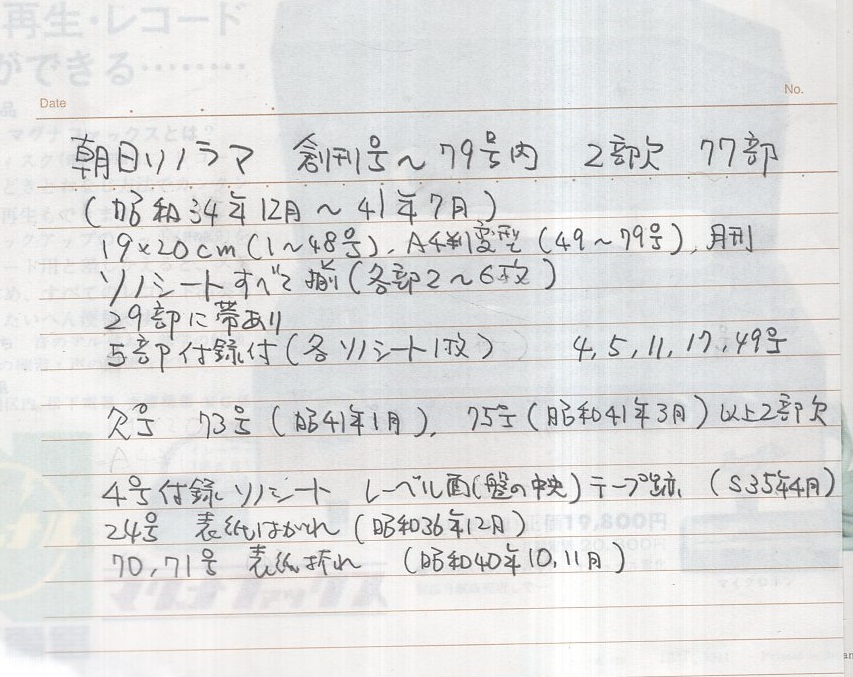 再生・レコード
ができる………
Date
No.
マグナフックスとは?
朝日ソノラマ 創刊号~79号内 2部欠 77部
(昭和34年12月~41年7月)
19×20cm(1~48号)、A4判変型(49~79号)、月刊
ソノシートすべて揃(各部2~6枚)
29部に帯あり
5部付録付(各ソノシート1枚) 4,5,11,17,49号
欠号 73号(昭41年1月)、75号(昭和41年3月)以上2部欠
4号付録ソノシート レーベル面(盤の中央)テープ跡、(S35年4月)
24号 表紙はがれ(昭和36年12月)
70,71号 表紙折れ (昭和40年10,11月)
定価19,800円
マグナフックス